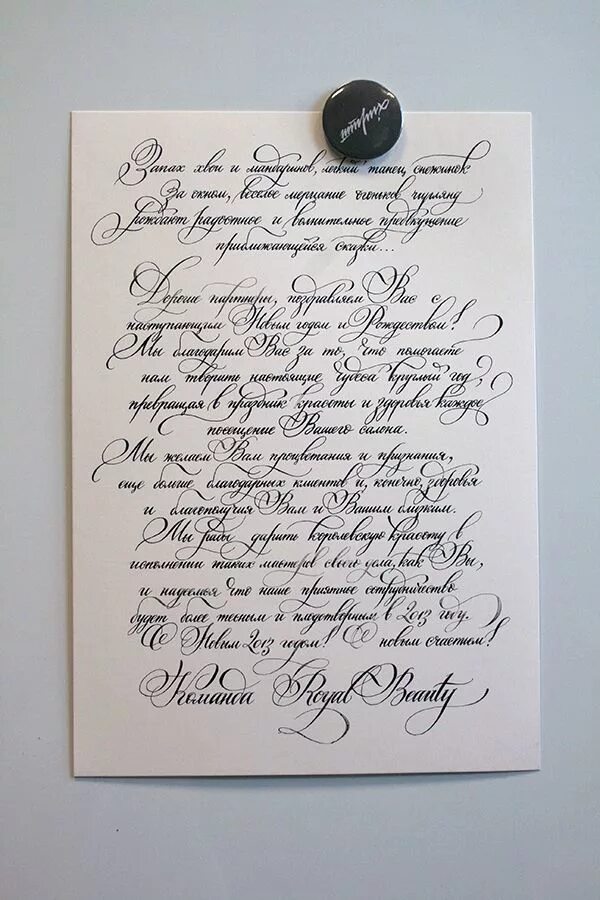 Запах хвои и мандаринов, легкий танец снежинок
За окном, веселое мерцание огоньков гирлянд
Рождают радостное и волнительное предвкушение
приближающейся сказки...
Дорогие партнеры, поздравляем Вас с
наступающим Новым годом и Рождеством!
Мы благодарим Вас за то, что помогаете
нам творить настоящие чудеса круглый год,
превращая в праздник красоты и здоровья каждое
посещение Вашего салона.
Мы желаем Вам процветания и признания,
еще больше благодарных клиентов и, конечно, здоровья
и благополучия Вам и Вашим близким.
Мы рады дарить королевскую красоту в
исполнении таких мастеров своего дела, как Вы,
и надеемся что наше приятное сотрудничество
будет более тесным и плодотворным в 2013 году.
С Новым 2013 годом! С новым счастьем!
Команда Royal Beauty